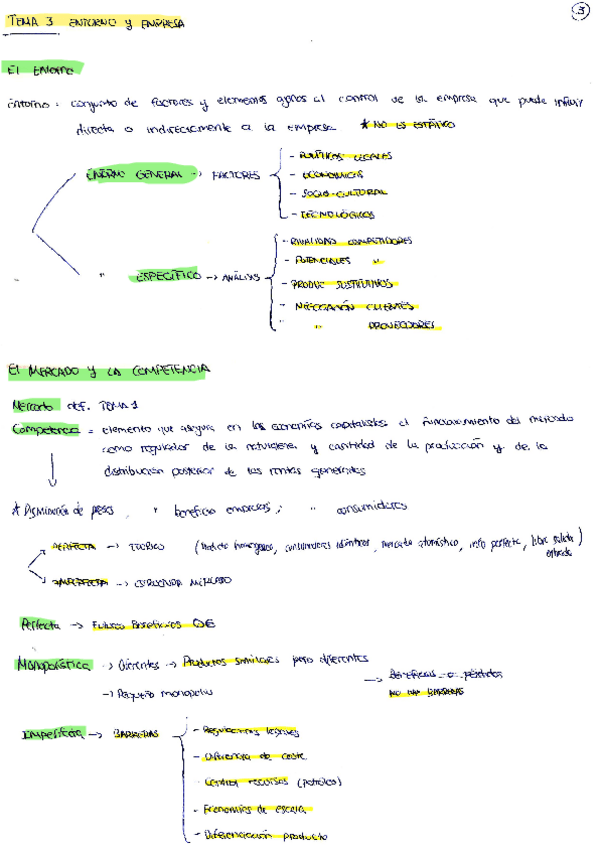 TEMA 3 ENTORNO y EMPRESA
3
El Entorno
Entorno = conjunto de factores y elementos ajenos al control de la empresa que puede influir
directa o indirectamente a la empresa * NO ES ESTÁTICO
ENTORNO GENERAL → FACTORES
- POLÍTICOS LEGALES
- ECONOMICOS
- SOCIO-CULTURAL
- TECNOLÓGICOS
" ESPECÍFICO → ANÁLISIS
- RIVALIDAD COMPETIDORES
- POTENCIALES "
- PRODUC SUSTITUTIVOS
- NEGOCIACIÓN CLIENTES
" " PROVEEDORES
El MERCADO y LA COMPETENCIA
Mercado def. TEMA 1
Competencia = elemento que asegura en las economías capitalistas el funcionamiento del mercado
como regulador de la naturaleza y cantidad de la producción y de la
distribución posterior de las rentas generadas
* Disminución de precios, " beneficio empresas, " consumidores
PERFECTA → TEÓRICO (Producto homogéneo, consumidores idénticos, mercado atomístico, info perfecta, libre salida
entrada)
IMPERFECTA → ESTRUCTURA MERCADO
Perfecta → Futuros Beneficios 0€
Monopolística → Diferentes → Productos similares pero diferentes
→ Pequeño monopolio
→ Beneficios o pérdidas
NO HAY BARRERAS
Imperfecta → BARRERAS
- Regulaciones legales
- Diferencia de coste
- Control recursos (petróleo)
- Economías de escala
- Diferenciación producto